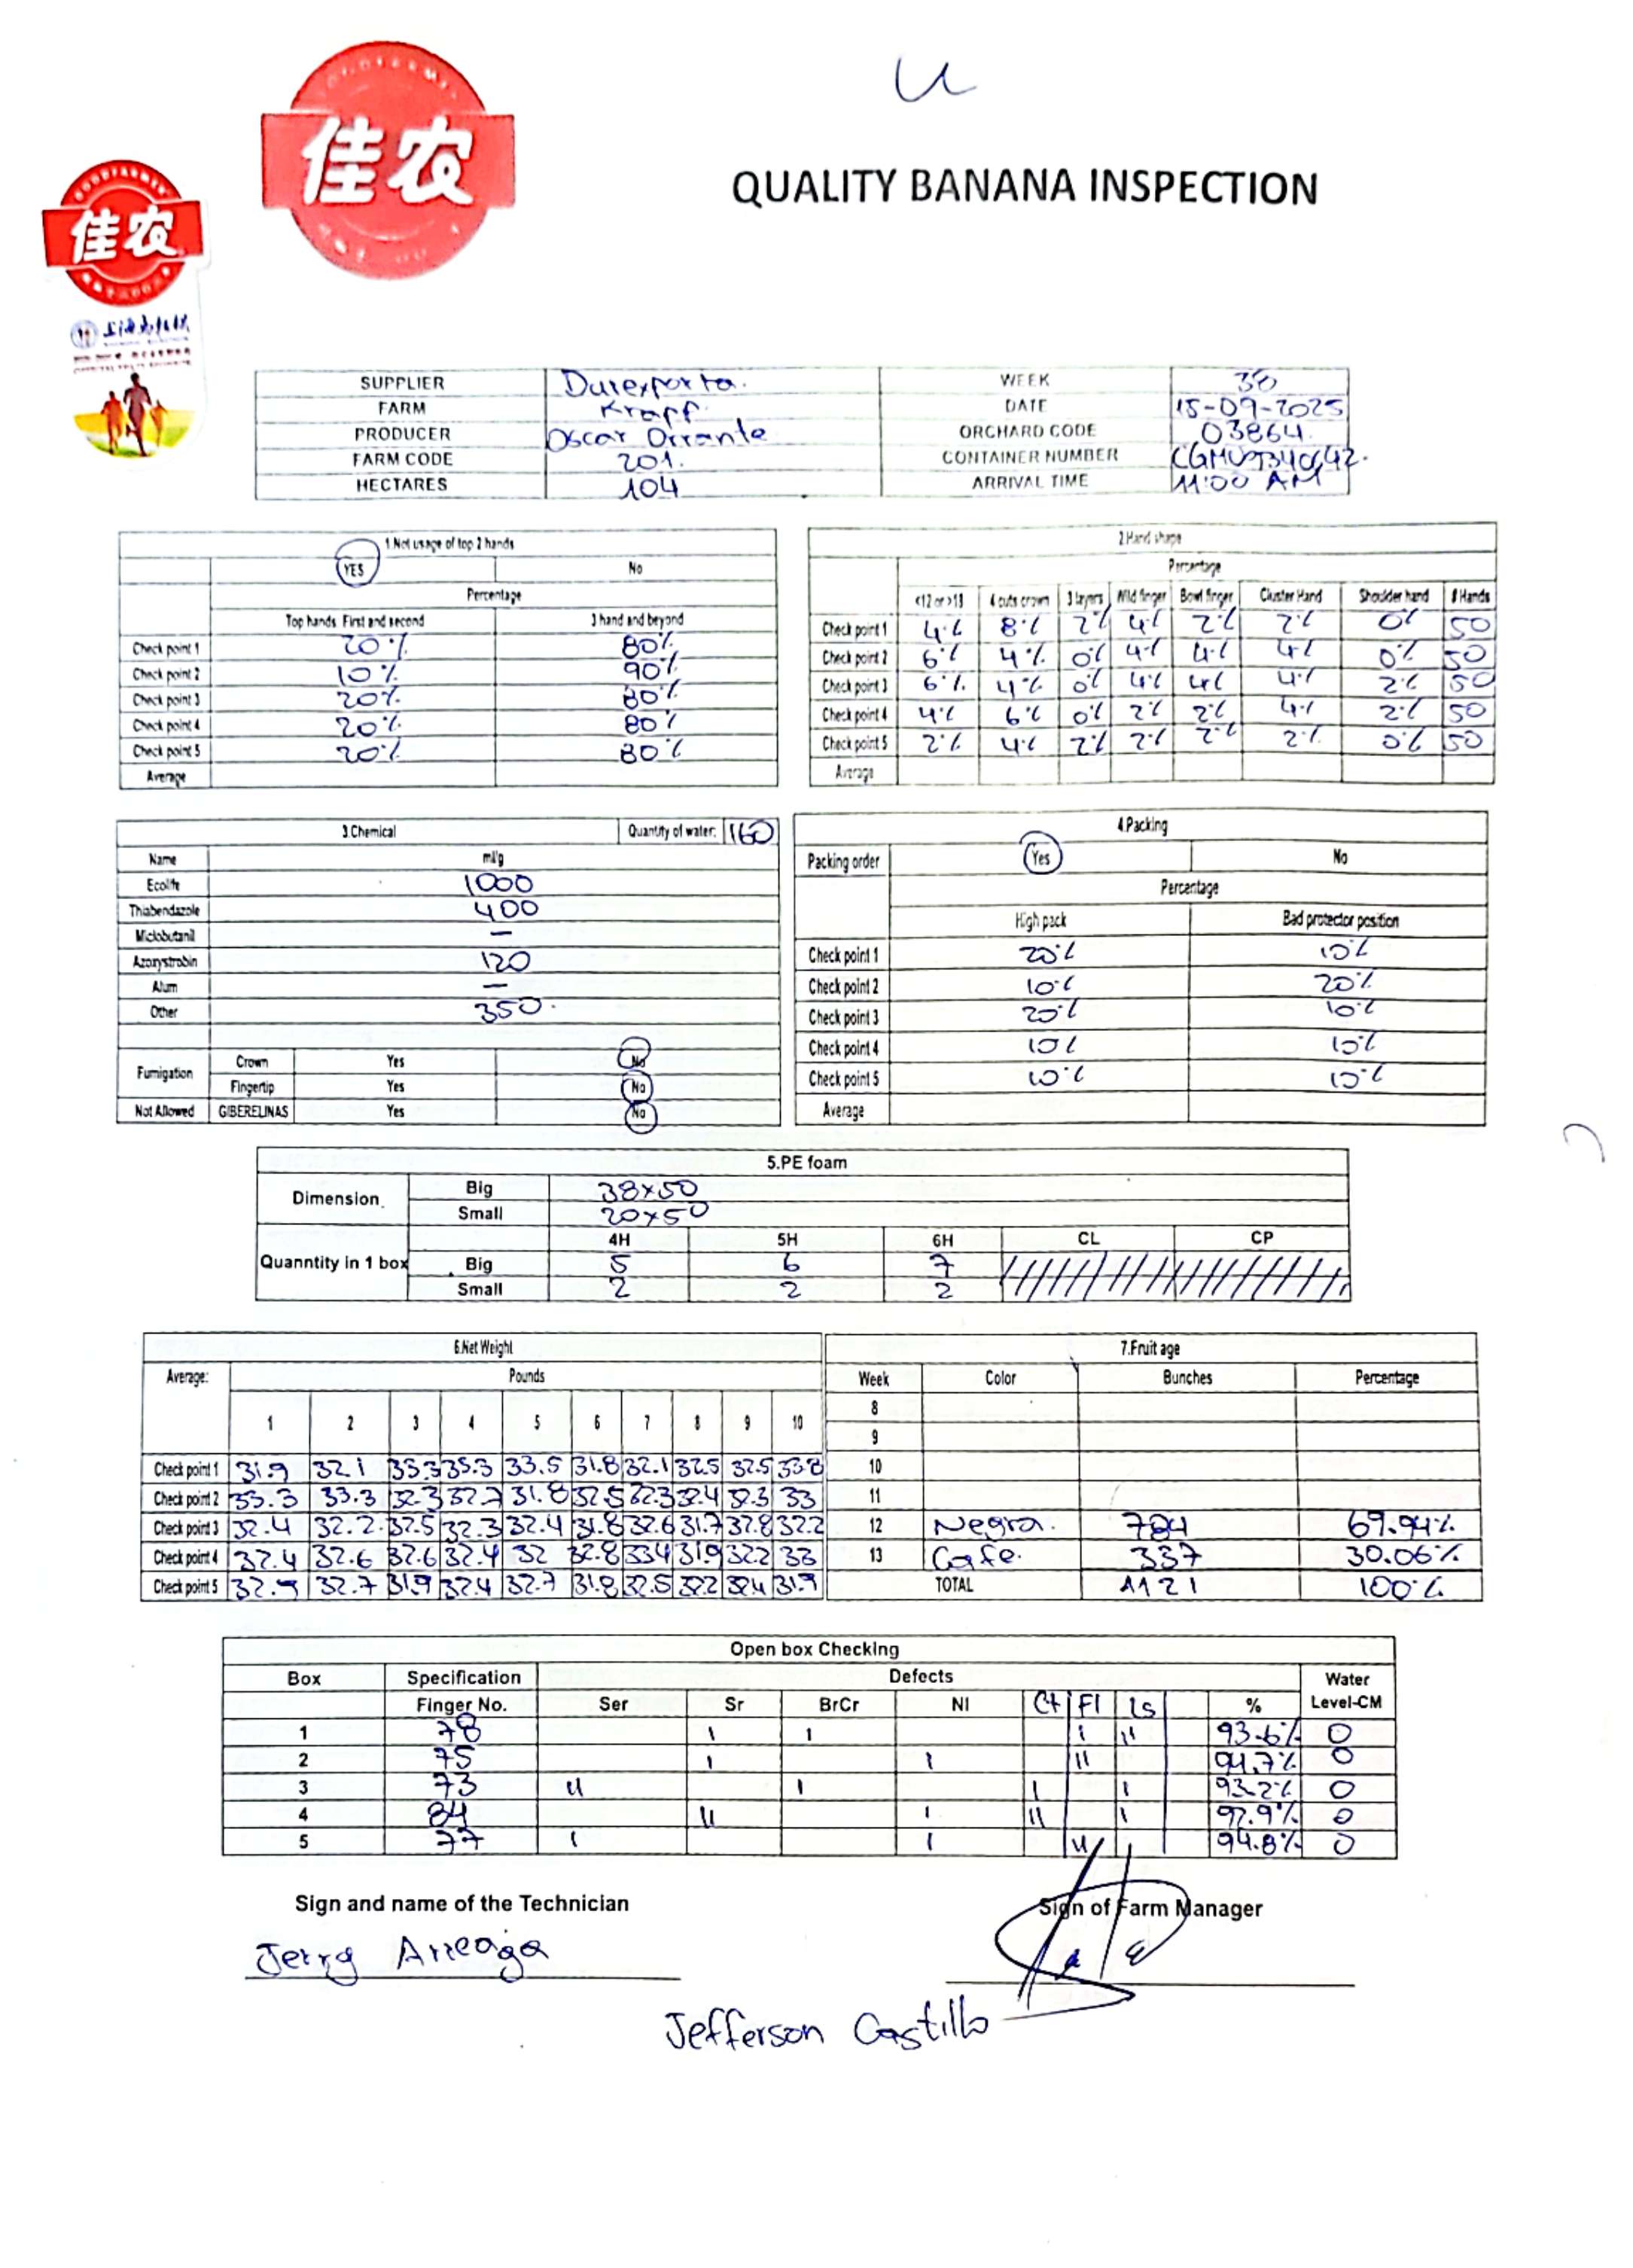 佳农
佳农
QUALITY BANANA INSPECTION
SUPPLIER Durexporta. WEEK 38
FARM Krapp. DATE 15-09-2025
PRODUCER Oscar Orrante ORCHARD CODE 03864
FARM CODE 201. CONTAINER NUMBER
HECTARES 104 ARRIVAL TIME 11:00 AM
1.Not usage of top 2 hands
YES No
Percentage
Top hands First and second 3 hand and beyond
Check point 1 20% 80%
Check point 2 10% 90%
Check point 3 20% 80%
Check point 4 20% 80%
Check point 5 20% 80%
Average
2.Hand shape
Percentage
<12 or >18 4 cuts crown 3 layers Wild finger Bowl finger Cluster Hand Shoulder hand # Hands
Check point 1 4% 8% 2% 4% 2% 2% 0% 50
Check point 2 6% 4% 0% 4% 4% 4% 0% 50
Check point 3 6% 4% 0% 4% 4% 4% 2% 50
Check point 4 4% 6% 0% 2% 2% 4% 2% 50
Check point 5 2% 4% 2% 2% 2% 2% 0% 50
Average
3.Chemical Quantity of water: 160
Name ml/g
Ecolife 1000
Thiabendazole 400
Miclobutanil —
Azoxystrobin 120
Alum —
Other 350.
Fumigation Crown Yes No
Fingertip Yes No
Not Allowed GIBERELINAS Yes No
4.Packing
Packing order Yes No
Percentage
High pack Bad protector position
Check point 1 20% 10%
Check point 2 10% 20%
Check point 3 20% 10%
Check point 4 10% 10%
Check point 5 10% 10%
Average
5.PE foam
Dimension. Big 38x50
Small 20x50
4H 5H 6H CL CP
Quanntity in 1 box Big 5 6 7
Small 2 2 2
6.Net Weight
Average: Pounds
1 2 3 4 5 6 7 8 9 10
Check point 1 31.9 32.1 33.3 33.3 33.5 31.8 32.1 32.5 32.5 33.8
Check point 2 33.3 33.3 32.3 32.7 31.8 32.5 32.3 32.4 32.3 33
Check point 3 32.4 32.2 32.5 32.3 32.4 31.8 32.6 31.7 32.8 32.2
Check point 4 32.4 32.6 32.6 32.4 32 32.8 33.4 31.9 32.2 33
Check point 5 32.9 32.7 31.9 32.4 32.7 31.8 32.5 32.2 32.4 31.9
7.Fruit age
Week Color Bunches Percentage
8
9
10
11
12 Negra. 784 69.94%
13 Cafe. 337 30.06%
TOTAL 1121 100%
Open box Checking
Box Specification Defects Water
Finger No. Ser Sr BrCr NI Ct Fl Ls % Level-CM
1 78 I I I II 93.6% 0
2 75 I I II 94.7% 0
3 73 II I I I 93.2% 0
4 84 II I II I 92.9% 0
5 77 I I II 94.8% 0
Sign and name of the Technician Sign of Farm Manager
Jerry Arreaga
Jefferson Castillo